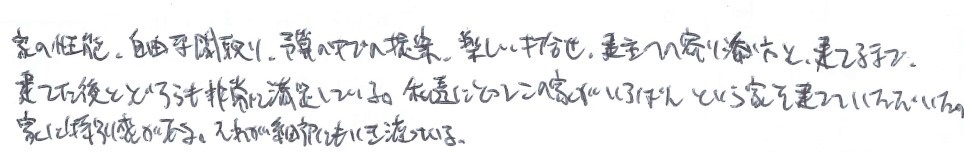 家の性能、自由な間取り、予算の中での提案、楽しい打合せ、建主への寄り添い方と、建てるまで、
建てた後とどちらも非常に満足している。私達にとってこの家がいちばんという家を建てていただいた。
家に特別感がある。それが細部にもいき渡っている。